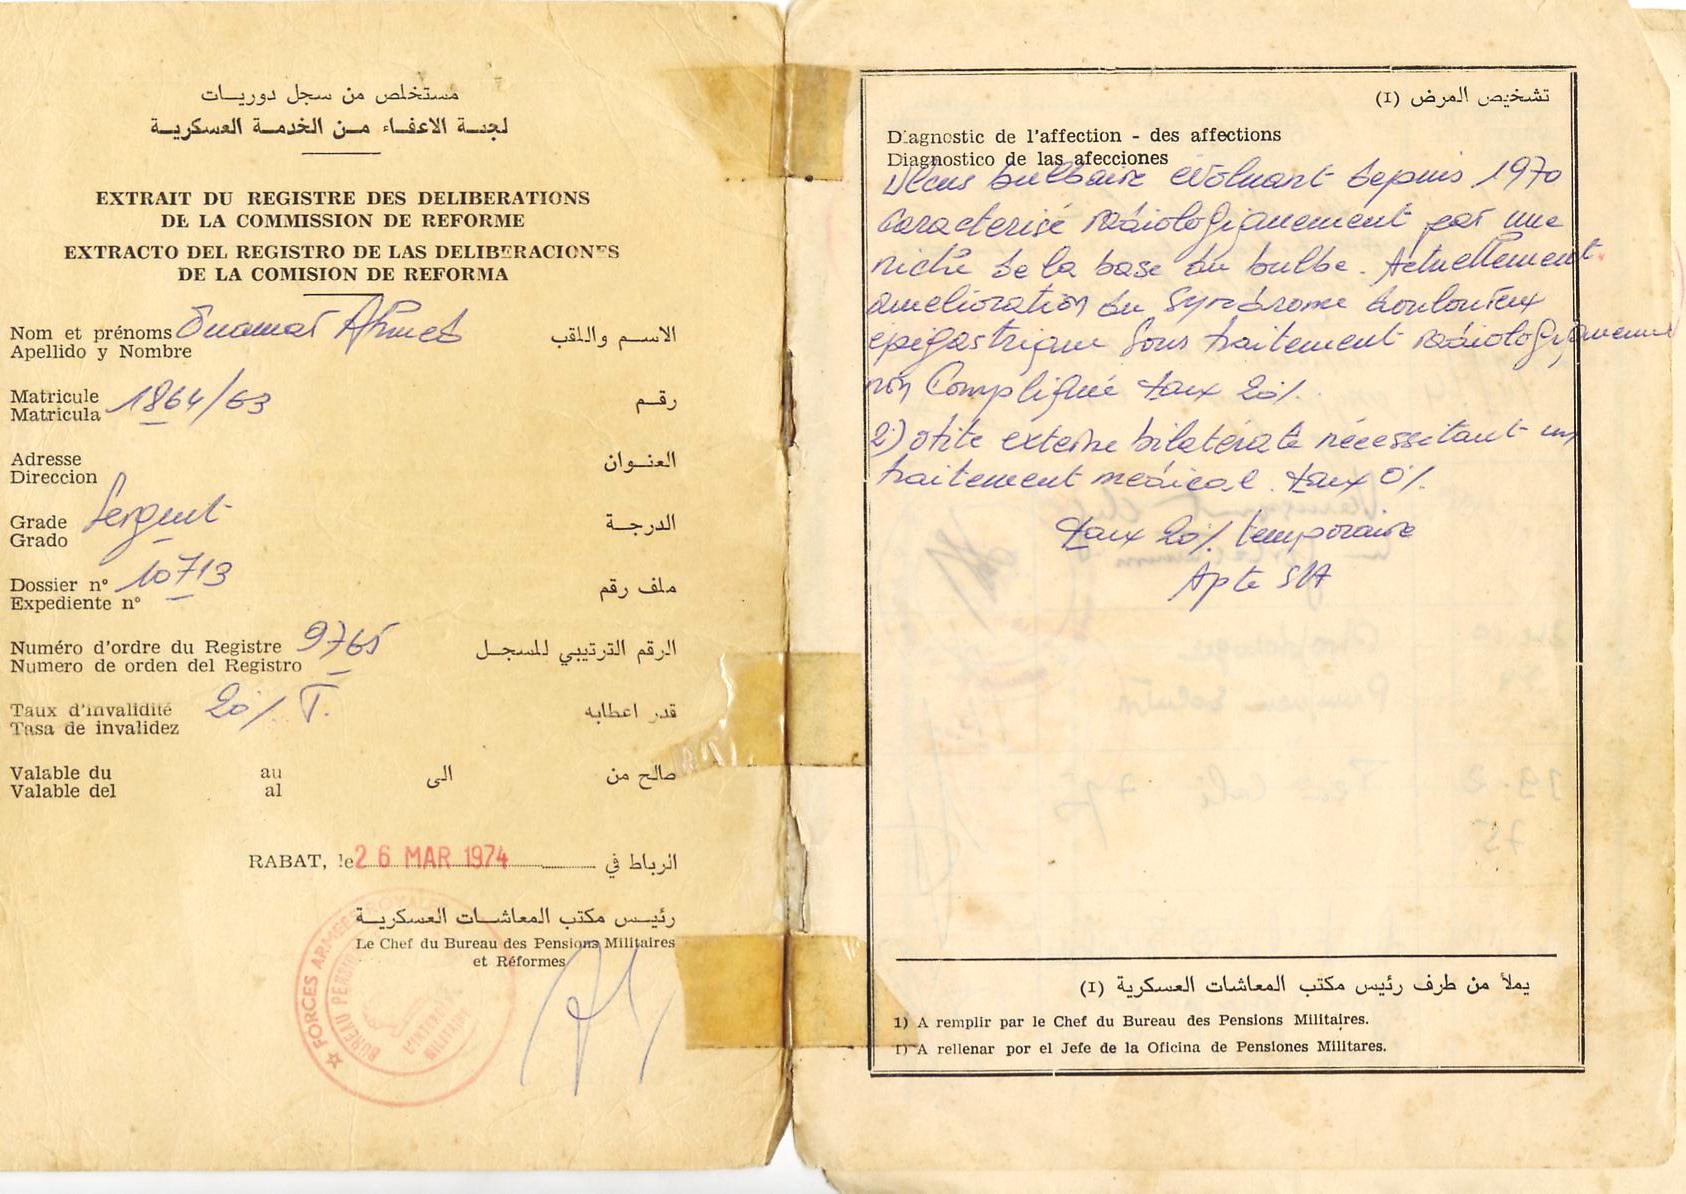 مستخلص من سجل دوريات
لجنة الاعفاء من الخدمة العسكرية
EXTRAIT DU REGISTRE DES DELIBERATIONS
DE LA COMMISSION DE REFORME
EXTRACTO DEL REGISTRO DE LAS DELIBERACIONES
DE LA COMISION DE REFORMA
Nom et prénoms Ahmed الاسم واللقب
Apellido y Nombre
Matricule 1864/63 رقم
Matricula
Adresse العنوان
Direccion
Grade Sergent الدرجة
Grado
Dossier n° 10713 ملف رقم
Expediente n°
Numéro d'ordre du Registre 9765 الرقم الترتيبي للسجل
Numero de orden del Registro
Taux d'invalidité 20% T. قدر اعطابه
Tasa de invalidez
Valable du au الى صالح من
Valable del al
RABAT, le 26 MAR 1974 الرباط في
رئيس مكتب المعاشات العسكرية
Le Chef du Bureau des Pensions Militaires
et Réformes
FORCES ARMEES ROYALES
BUREAU
MILITAIRE
تشخيص المرض (I)
Diagnostic de l'affection - des affections
Diagnostico de las afecciones
Ulcus bulbaire évoluant depuis 1970
caracterisé radiologiquement par une
niche de la base du bulbe. Actuellement
amelioration du syndrome douloureux
épigastrique sous traitement radiologiquement
non Compliquée taux 20%.
2) otite externe bilatérale nécessitant un
traitement médical. taux 0%
taux 20% temporaire
Apte SA
يملأ من طرف رئيس مكتب المعاشات العسكرية (I)
1) A remplir par le Chef du Bureau des Pensions Militaires.
1) A rellenar por el Jefe de la Oficina de Pensiones Militares.